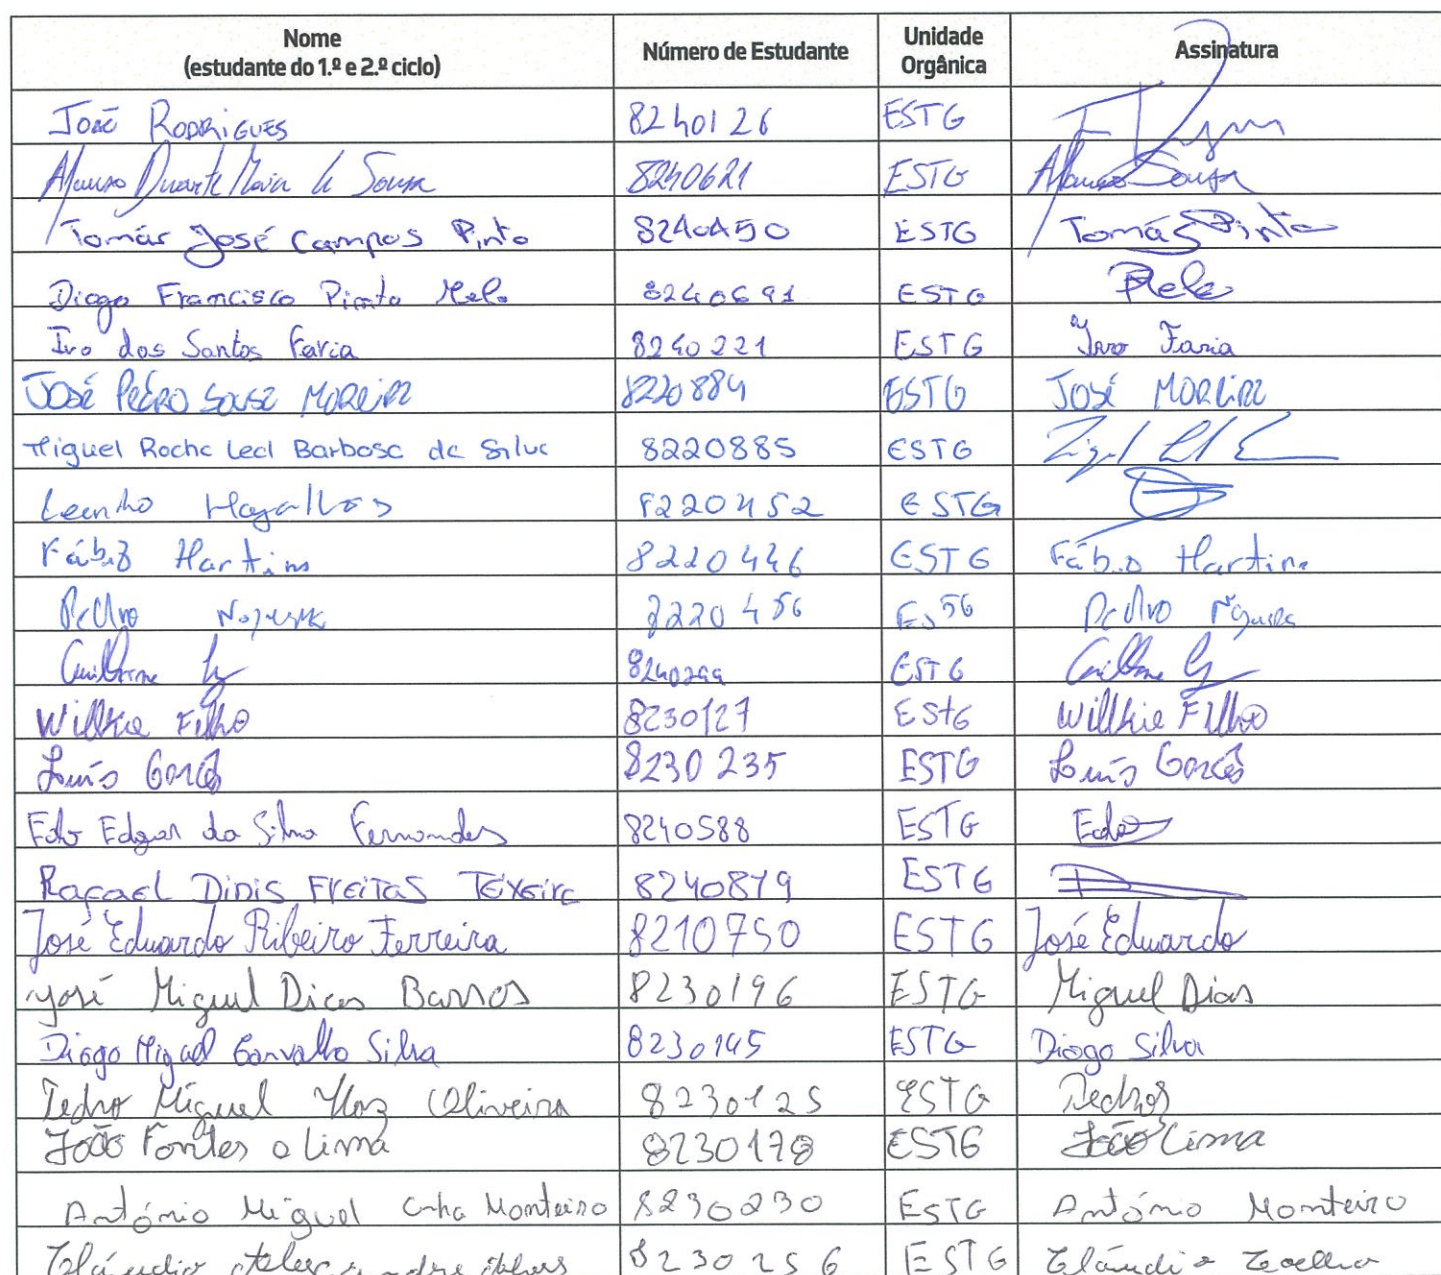 Nome (estudante do 1.º e 2.º ciclo) Número de Estudante Unidade Orgânica Assinatura
João Rodrigues 8240126 ESTG
Afonso Duarte Maria de Sousa 8240621 ESTG Afonso Sousa
Tomás José Campos Pinto 8240450 ESTG Tomás Pinto
Diogo Francisco Pinto Melo 8240691 ESTG
Ivo dos Santos Faria 8240221 ESTG Ivo Faria
José Pedro Sousa Moreira 8220884 ESTG José Moreira
Miguel Rocha Leal Barbosa da Silva 8220885 ESTG
Magalhães 8220452 ESTG
Fábio Martins 8220446 ESTG Fábio Martins
Pedro Nogueira 8220456 ESTG Pedro Nogueira
Guilherme 8240299 ESTG Guilherme
Willkie Filho 8230127 ESTG Willkie Filho
Luís Garcês 8230235 ESTG Luís Garcês
Edgar da Silva Fernandes 8240588 ESTG
Rafael Dinis Freitas Teixeira 8240879 ESTG
José Eduardo Ribeiro Ferreira 8210750 ESTG José Eduardo
José Miguel Dias Barros 8230196 ESTG Miguel Dias
Diogo Miguel Carvalho Silva 8230145 ESTG Diogo Silva
Pedro Miguel Vaz Oliveira 8230125 ESTG
João Fontes e Lima 8230178 ESTG João Lima
António Miguel Cunha Monteiro 8230230 ESTG António Monteiro
Cláudio 8230256 ESTG Cláudio Coelho